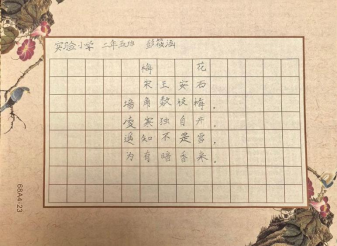 实验小学 二年五班
梅 花
宋 王安石
墙角数枝梅，
凌寒独自开，
遥知不是雪，
为有暗香来。
68A4-23